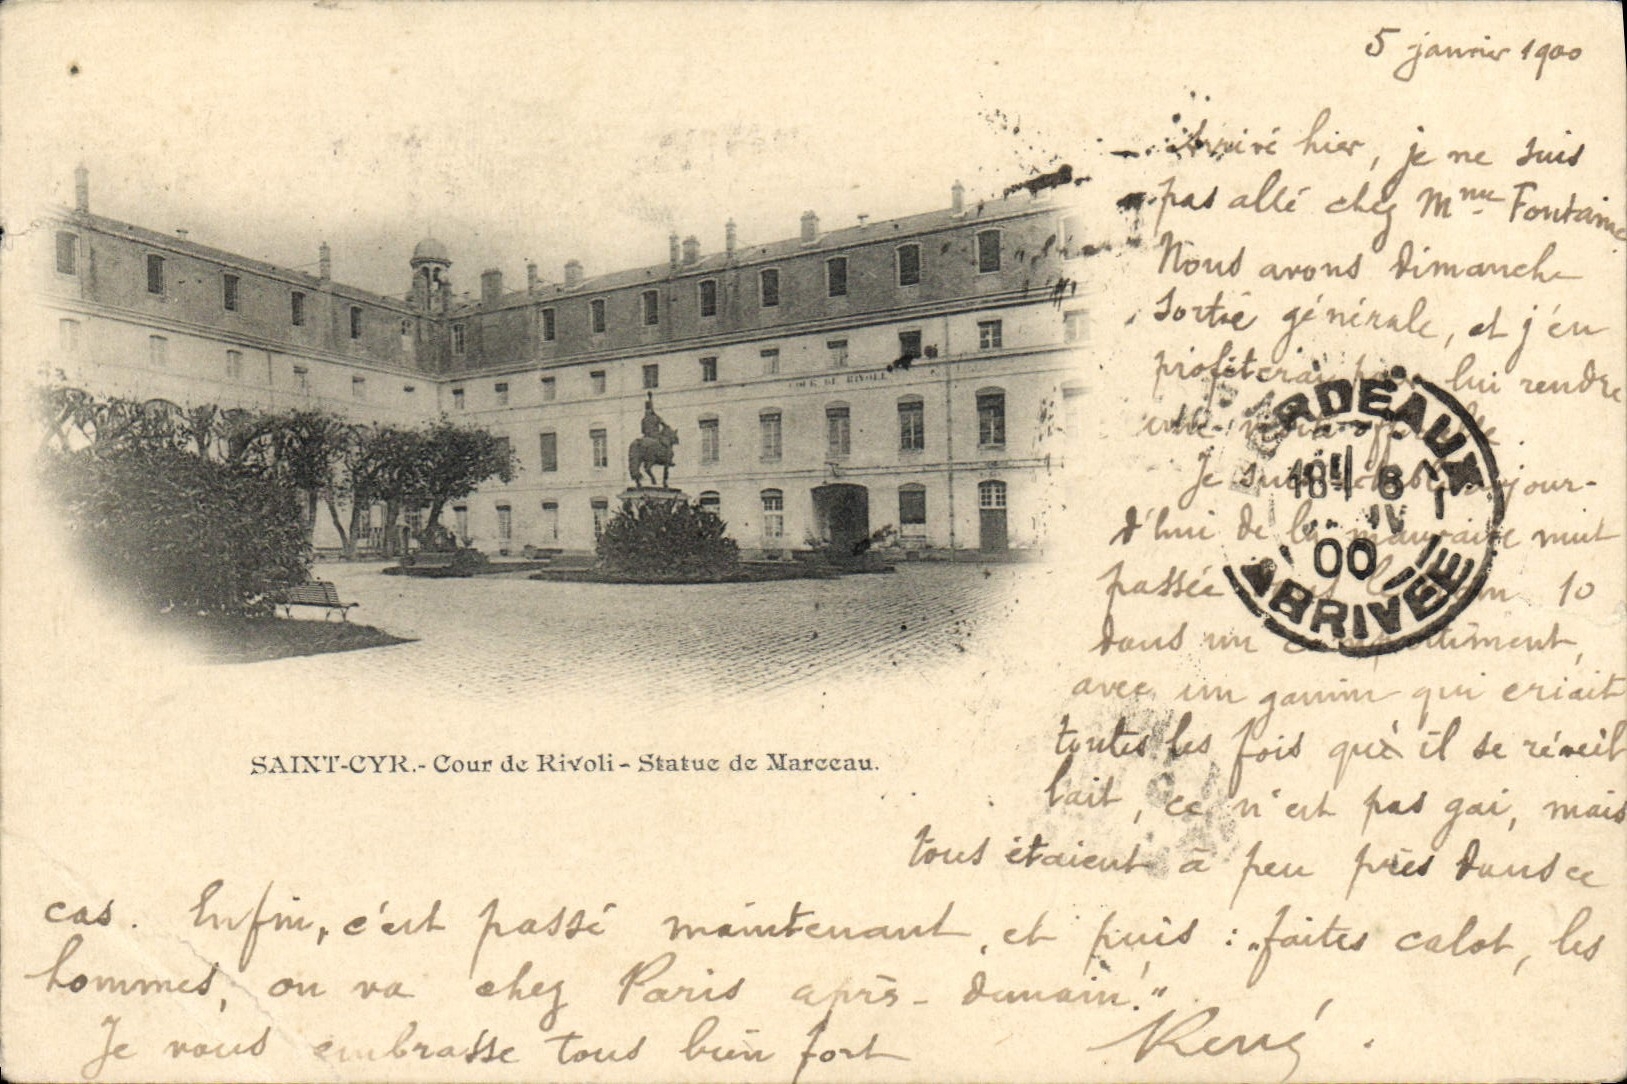 5 janvier 1900
Arrivé hier, je ne suis
pas allé chez Mme Fontaine
Nous avons dimanche
sortie générale, et j'en
profiterai pour lui rendre
une visite officielle.
Je suis aujour-
d'hui de la mauvaise nuit
passée 10
dans un compartiment,
avec un gamin qui criait
toutes les fois qu'il se réveil
lait, ce n'est pas gai, mais
tous étaient à peu près dans ce
cas. Enfin, c'est passé maintenant, et puis : "faites calot, les
hommes, on va chez Paris après-demain!"
Je vous embrasse tous bien fort
René.
COUR DE RIVOLI
SAINT-CYR.- Cour de Rivoli - Statue de Marceau.
BORDEAUX
18H 6
00
ARRIVEE